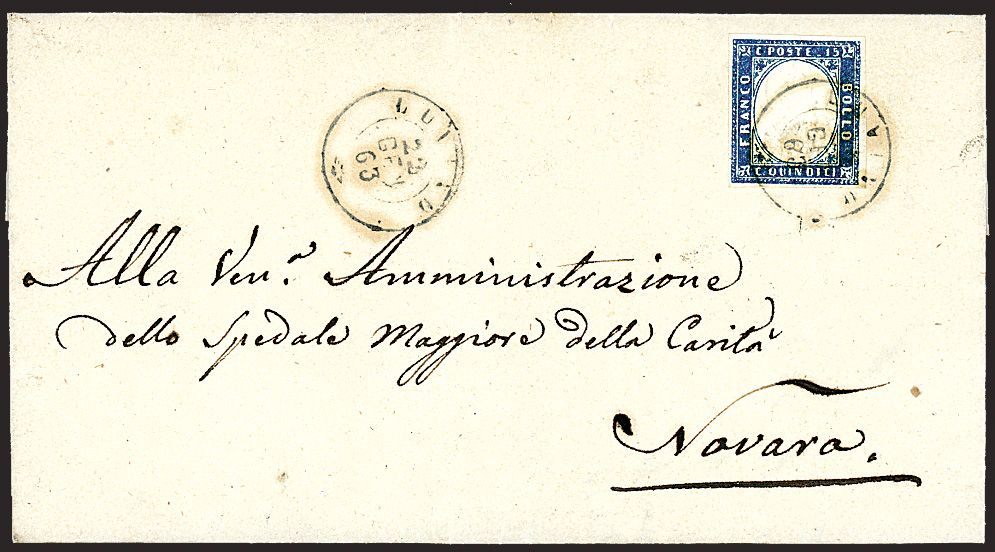 C POSTE 15
FRANCO
BOLLO
C QUINDICI
23
GEN
63
Alla Ven.ª Amministrazione
dello Spedale Maggiore della Carità
Novara.